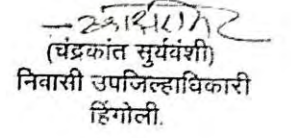 (चंद्रकांत सुर्यवंशी)
निवासी उपजिल्हाधिकारी
हिंगोली.